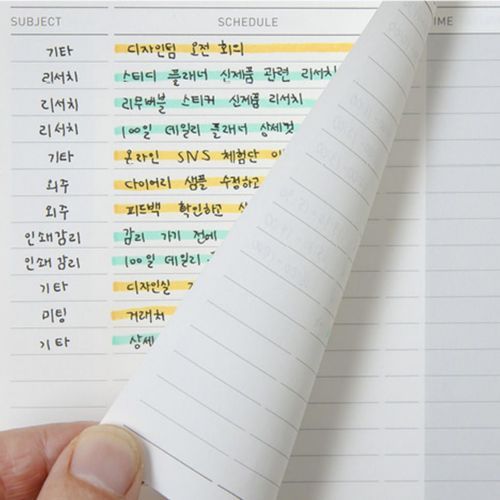 SUBJECT SCHEDULE IME
기타 디자인팀 오전 회의
리서치 스터디 플래너 신제품 관련 리서치
리서치 리무버블 스티커 신제품 리서치
리서치 100일 데일리 플래너 상세컷
기타 온라인 SNS 체험단
외주 다이어리 샘플 수정하고
외주 피드백 확인하고
인쇄감리 감리 가기 전에
인쇄감리 100일 데일리
기타 디자인실
미팅 거래처
기타 상세